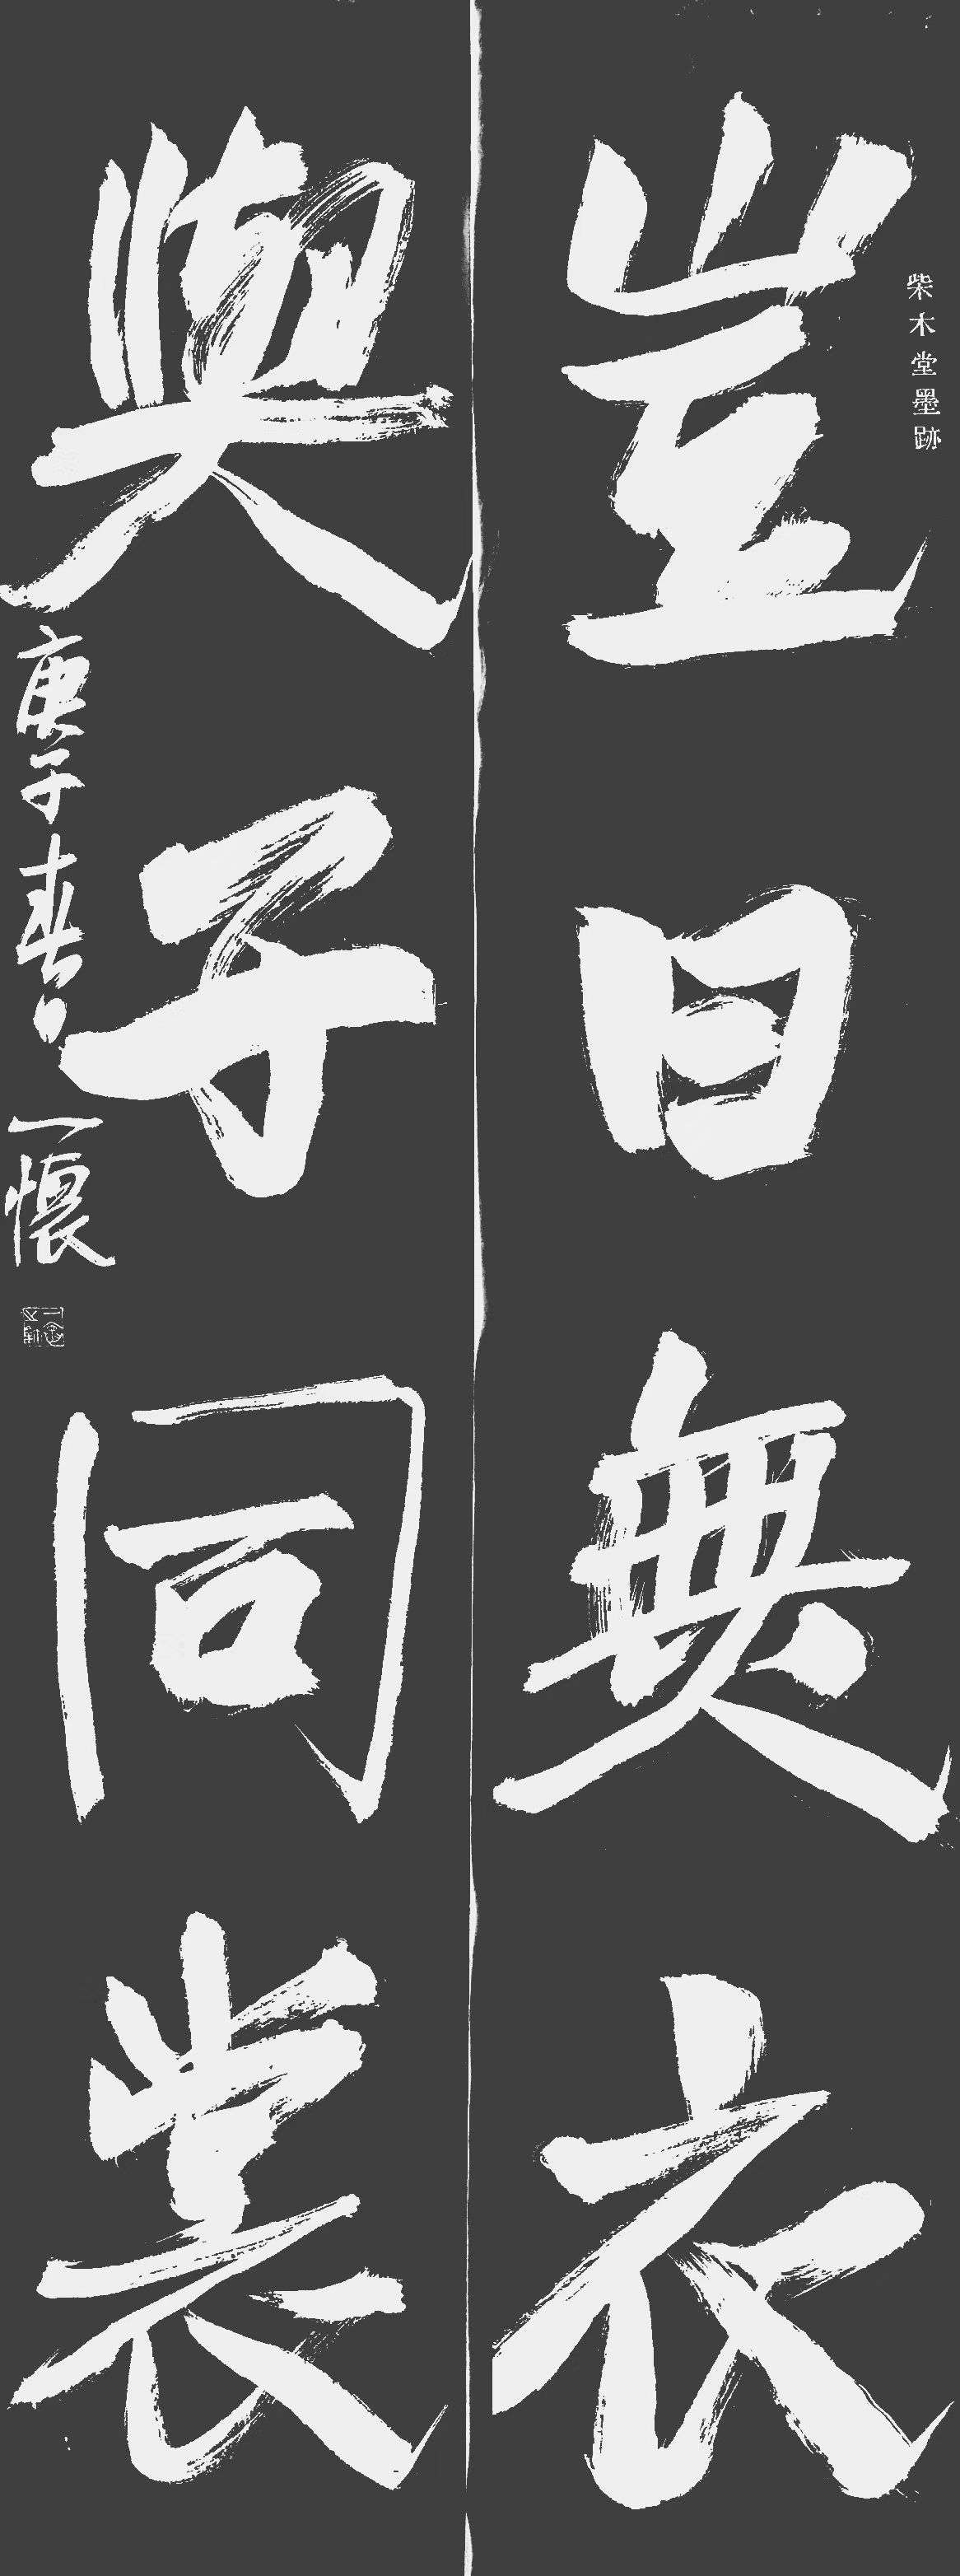 柴木堂墨跡
豈曰無衣
與子同裳
庚子春日
一懷